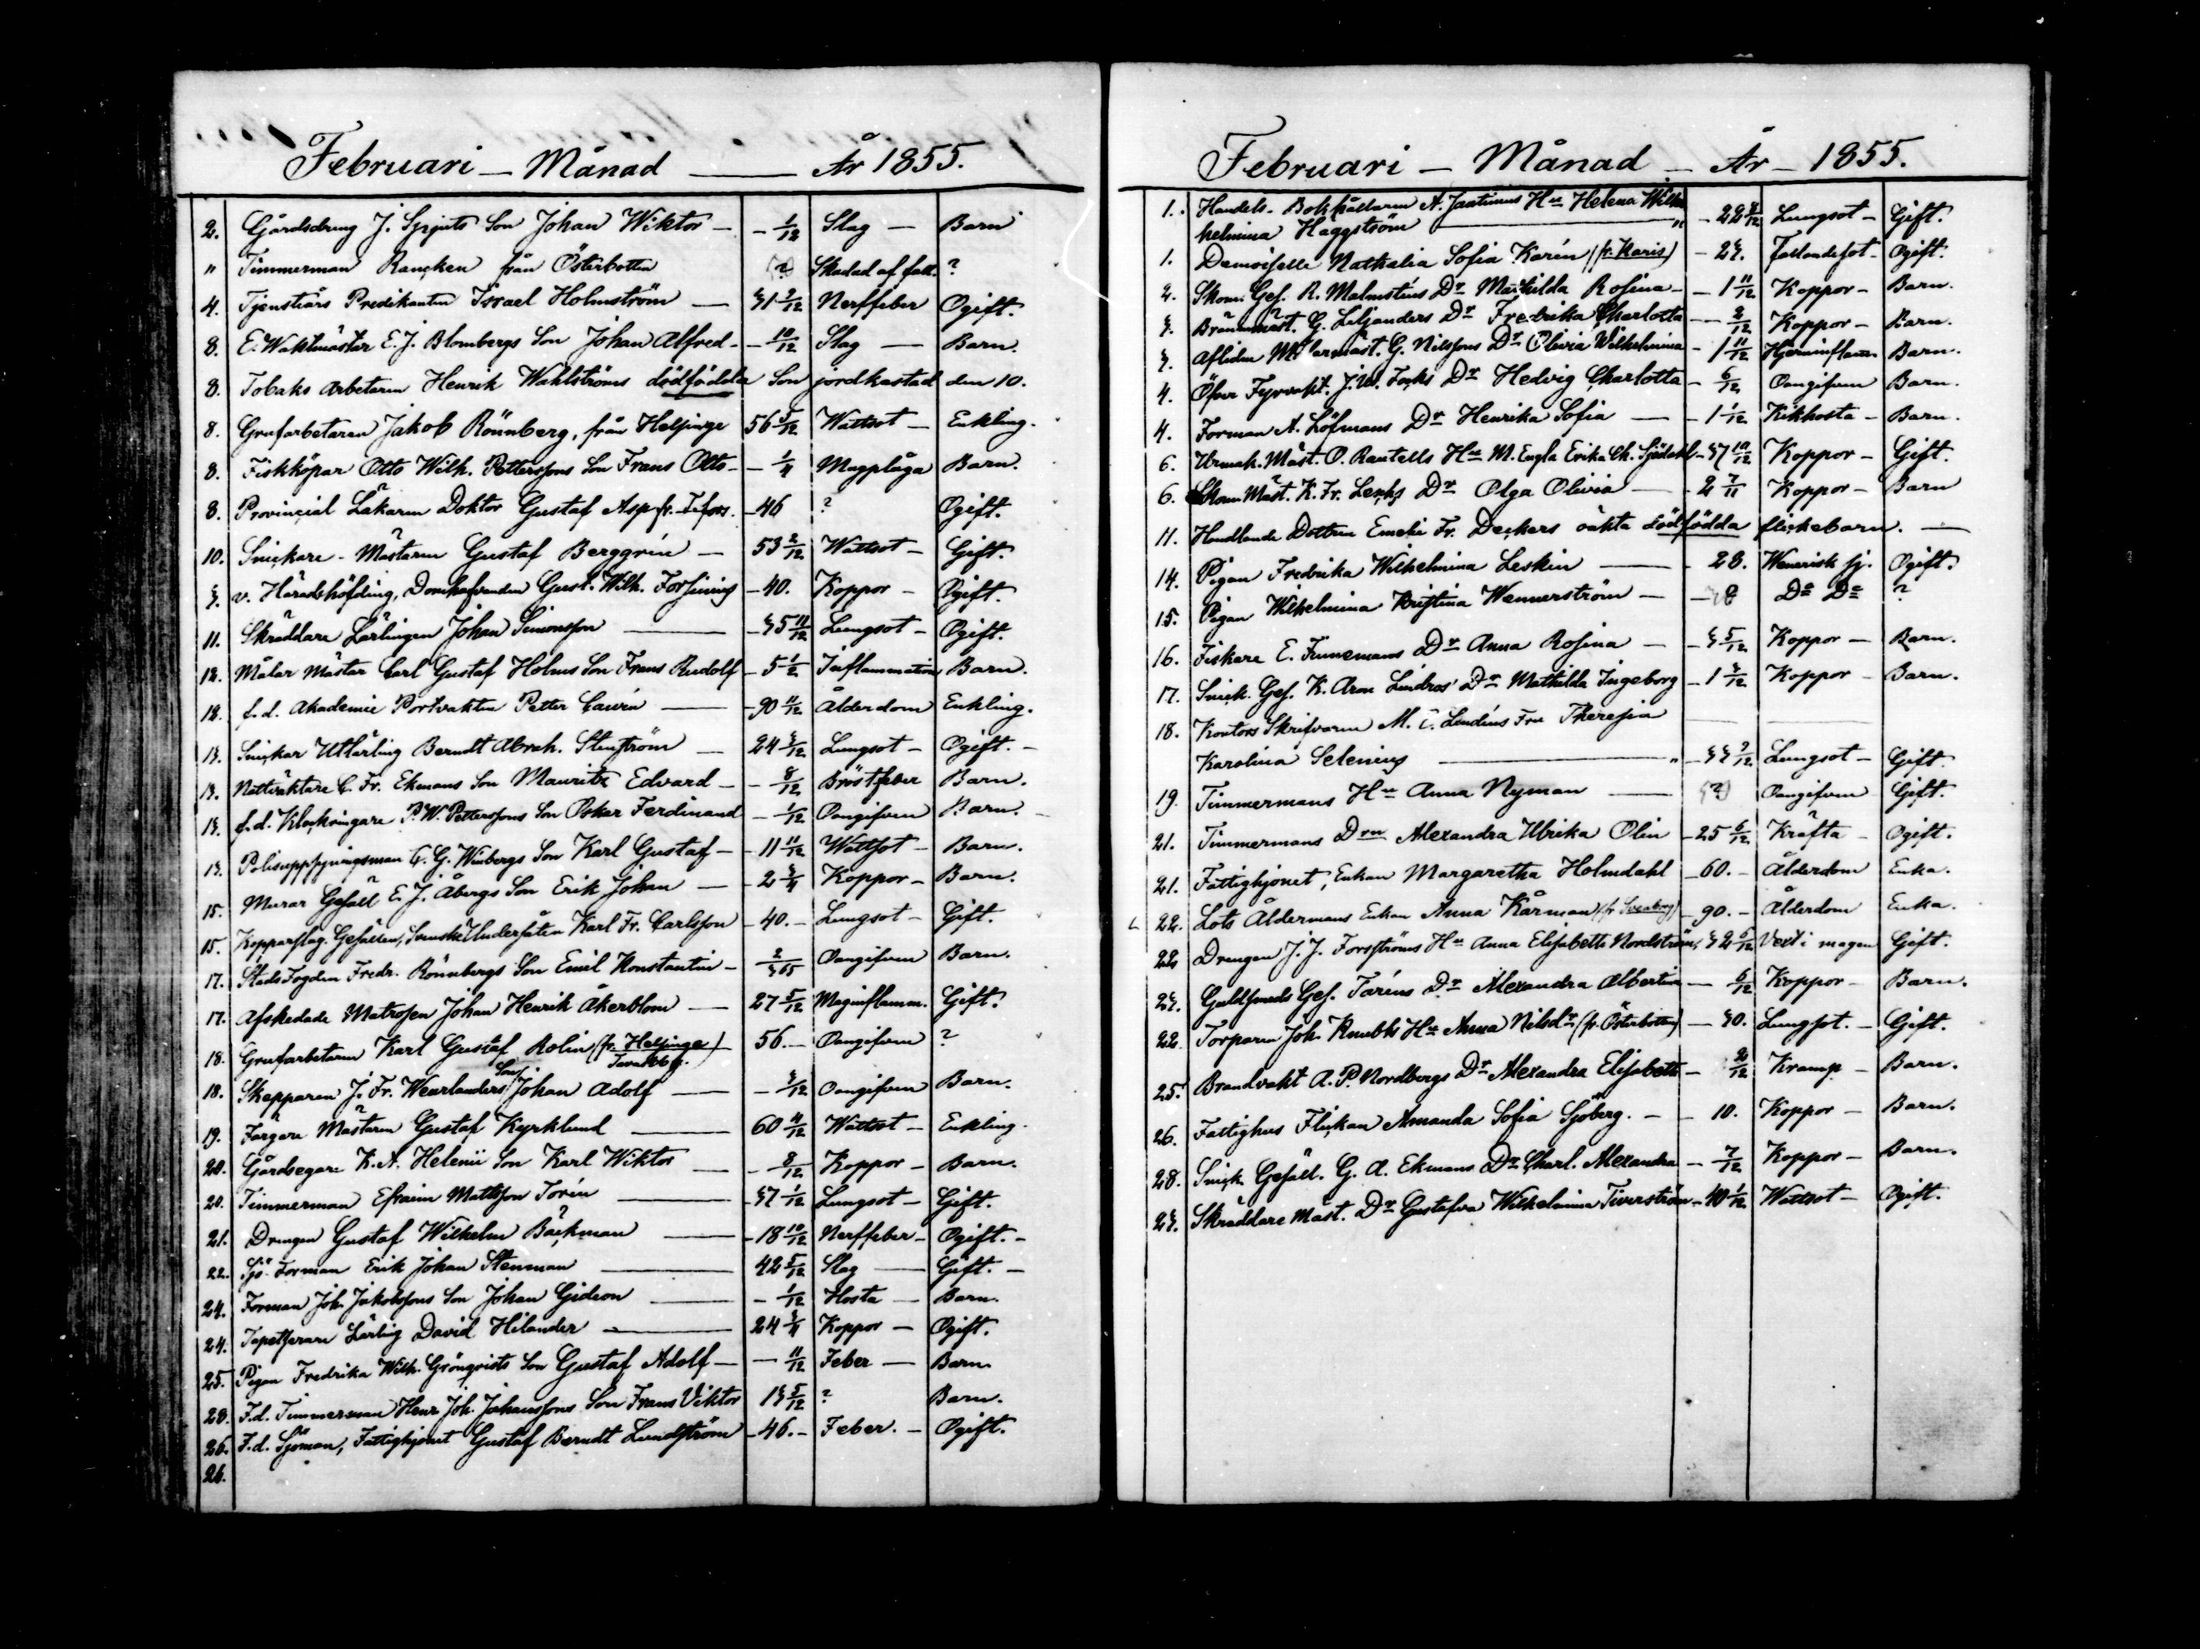 Februari - Månad — År 1855.
2. Gårdsdreng J. Spjuts Son Johan Wiktor - - 1/12 Slag - Barn
" Timmerman Rancken från Österbotten ? Skadad af fall. ?
4. Tjenstiårs Predikanten Israel Holmström - 31 2/12 Nerffeber Ogift.
8. E. Waktmästar E. J. Blombergs Son Johan Alfred - - 10/12 Slag - Barn.
8. Tobaks Arbetaren Henrik Wahlströms dödfödda Son jordkastad den 10.
8. Grufarbetaren Jakob Rönnberg, från Helsinge 56 5/12 Wattsot - Enkling.
8. Fiskköpar Otto Wilh. Petterssons Son Frans Otto - - 1/4 Magplåga Barn.
8. Provincial Läkaren Doktor Gustaf Asp - 46 ? Ogift.
10. Snickare - Mästaren Gustaf Berggrén - 53 2/12 Wattsot - Gift.
3. v. Häradshöfding, Domhafvanden Gust. Wilh. Forsinius - 40. Koppor - Ogift.
11. Skräddare Lärlingen Johan Simonsson - 35 11/12 Lungsot - Ogift.
12. Målar Mästar Carl Gustaf Holms Son Frans Rudolf - 5 1/2 Inflammation Barn.
12. f.d. Akademie Portvakten Petter Cawén - 90 11/12 Ålderdom Enkling.
13. Snickar Utlärling Berndt Abrah. Stenström - 24 3/12 Lungsot - Ogift. -
13. Nattväktare C. Fr. Ekmans Son Mauritz Edvard - - 8/12 Bröstfeber Barn.
13. f.d. Klockringare P. W. Petterssons Son Oskar Ferdinand - 1/12 Oangifven Barn.
13. Polisuppsyningsman G. G. Winbergs Son Karl Gustaf - 11 11/12 Wattsot - Barn.
15. Murar Gesäll E. J. Åbergs Son Erik Johan - 2 3/4 Koppor - Barn.
15. Kopparslag. Gesällen, Svenska Undersåten Karl Fr. Carlsson - 40. - Lungsot - Gift.
17. Stads Fogden Fredr. Rönnbergs Son Emil Konstantin - 2/365 Oangifven Barn.
17. Afskedade Matrosen Johan Henrik Åkerblom - 27 5/12 Maginflamm. Gift.
18. Grufarbetaren Karl Gustaf Rolin (fr. Helsinge) 56. - Oangifven ?
18. Skepparen J. Fr. Wearlanders Son Johan Adolf - 3/12 Oangifven Barn.
19. Färgare Mästaren Gustaf Kyrklund 60 11/12 Wattsot - Enkling.
20. Gårdsegare K. A. Helenii Son Karl Wiktor - 8/12 Koppor - Barn.
20. Timmerman Efraim Mattsson Torén - 37 1/12 Lungsot - Gift.
21. Drengen Gustaf Wilhelm Backman - 18 10/12 Nerffeber - Ogift. -
22. Sjö Forman Erik Johan Stenman 42 5/12 Slag - Gift. -
24. Forman Joh. Jakobssons Son Johan Gideon - 1/12 Hosta - Barn.
24. Tapetserare Lärling David Hilander 24 3/4 Koppor - Ogift.
25. Pigan Fredrika Wilh. Grönqvists Son Gustaf Adolf - - 11/12 Feber - Barn
28. F.d. Timmerman Henr. Joh. Johanssons Son Frans Viktor 13 5/12 ? Barn.
26. F.d. Sjöman, Fattighjonet Gustaf Berndt Lundström - 46. - Feber. - Ogift.
26.
Februari - Månad - År - 1855.
1. Handels-Bokhållaren A. Jantunens Hu Helena Wilhelmina Häggström - 22 8/12 Lungsot - Gift.
1. Demoiselle Nathalia Sofia Karén (fr. Karis) - 23. Fallandesot - Ogift.
2. Skom. Ges. R. Malmsténs Dr Mathilda Rosina - - 1 11/12 Koppor - Barn.
3. Brännmäst. G. Liljanders Dr Fredrika Charlotta - 8/12 Koppor - Barn.
3. Afliden Murarmäst. G. Nilssons Dr Olivia Wilhelmina - 1 11/12 Hjerninflam. Barn.
4. Öfver Fyrvakt. J. W. Focks Dr Hedvig Charlotta - 6/12 Oangifven Barn.
4. Forman A. Löfmans Dr Henrika Sofia - - 1 1/12 Kikhosta - Barn.
6. Urmak. Mäst. O. Rautells Hu M. Engla Erika Ch. Sjödahl - 37 10/12 Koppor - Gift.
6. Skom. Mäst. K. Fr. Lencks Dr Olga Olivia - 2 7/11 Koppor - Barn
11. Handlande Dottren Emelie Fr. Deckers oäkta dödfödda flickebarn. -
14. Pigan Fredrika Wilhelmina Leskin - 28. Wenerisk sj. Ogift.
15. Pigan Wilhelmina Kristina Wennerström - ? Do Do ?
16. Fiskare E. Finnemans Dr Anna Rosina - 3 5/12 Koppor - Barn.
17. Snick. Ges. K. Aron Lindros' Dr Mathilda Ingeborg - 1 3/12 Koppor - Barn.
18. Kontors Skrifvaren M. C. Lindéns Fru Theresia
Karolina Selenius " - 33 9/12 Lungsot - Gift.
19. Timmermans Hu Anna Nyman ? Oangifven Gift.
21. Timmermans Dren Alexandra Ulrika Olin - 25 6/12 Kräfta - Ogift.
21. Fattighjonet, Enkan Margaretha Holmdahl - 60. - Ålderdom Enka.
22. Lots Åldermans Enkan Anna Kårman (fr Sveaborg) - 90. - Ålderdom Enka.
22 Drengen J. J. Forsströms Hu Anna Elisabeth Nordström, 32 5/12 Vext i magen Gift.
23. Guldsmeds Ges. Taréns Dr Alexandra Albertina - 6/12 Koppor - Barn.
22. Torparen Joh. Knubbs Hu Anna Nilsdr (fr. Österbotten) - 30. Lungsot. - Gift.
25. Brandvakt A. P. Nordbergs Dr Alexandra Elisabeth - 2/12 Kramp - Barn.
26. Fattighus Flickan Amanda Sofia Sjöberg. - - 10. Koppor - Barn.
28. Snick. Gesäll. G. A. Ekmans Dr Charl. Alexandra - 7/12 Koppor - Barn.
23. Skräddare Mäst. Dr Gustafva Wilhelmina Tiverström - 40 1/12 Wattsot - Ogift.